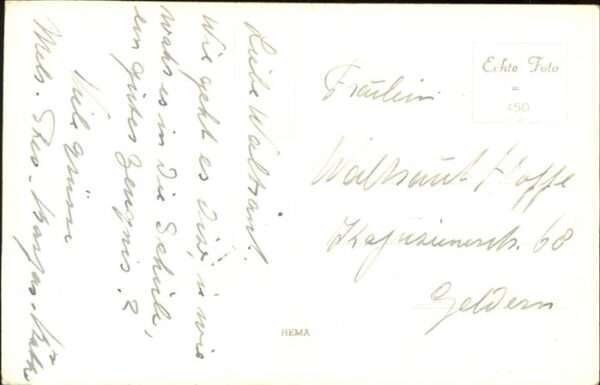 Liebe Waltraut!
Wie geht es Dir, u wie
wahr es in die Schule,
ein gutes Zeugnis?
Viele grüsse
Echte Foto
=
450
Fräulein
Waltraut Hoffe
Kapuzinerstr. 68
Geldern
HEMA